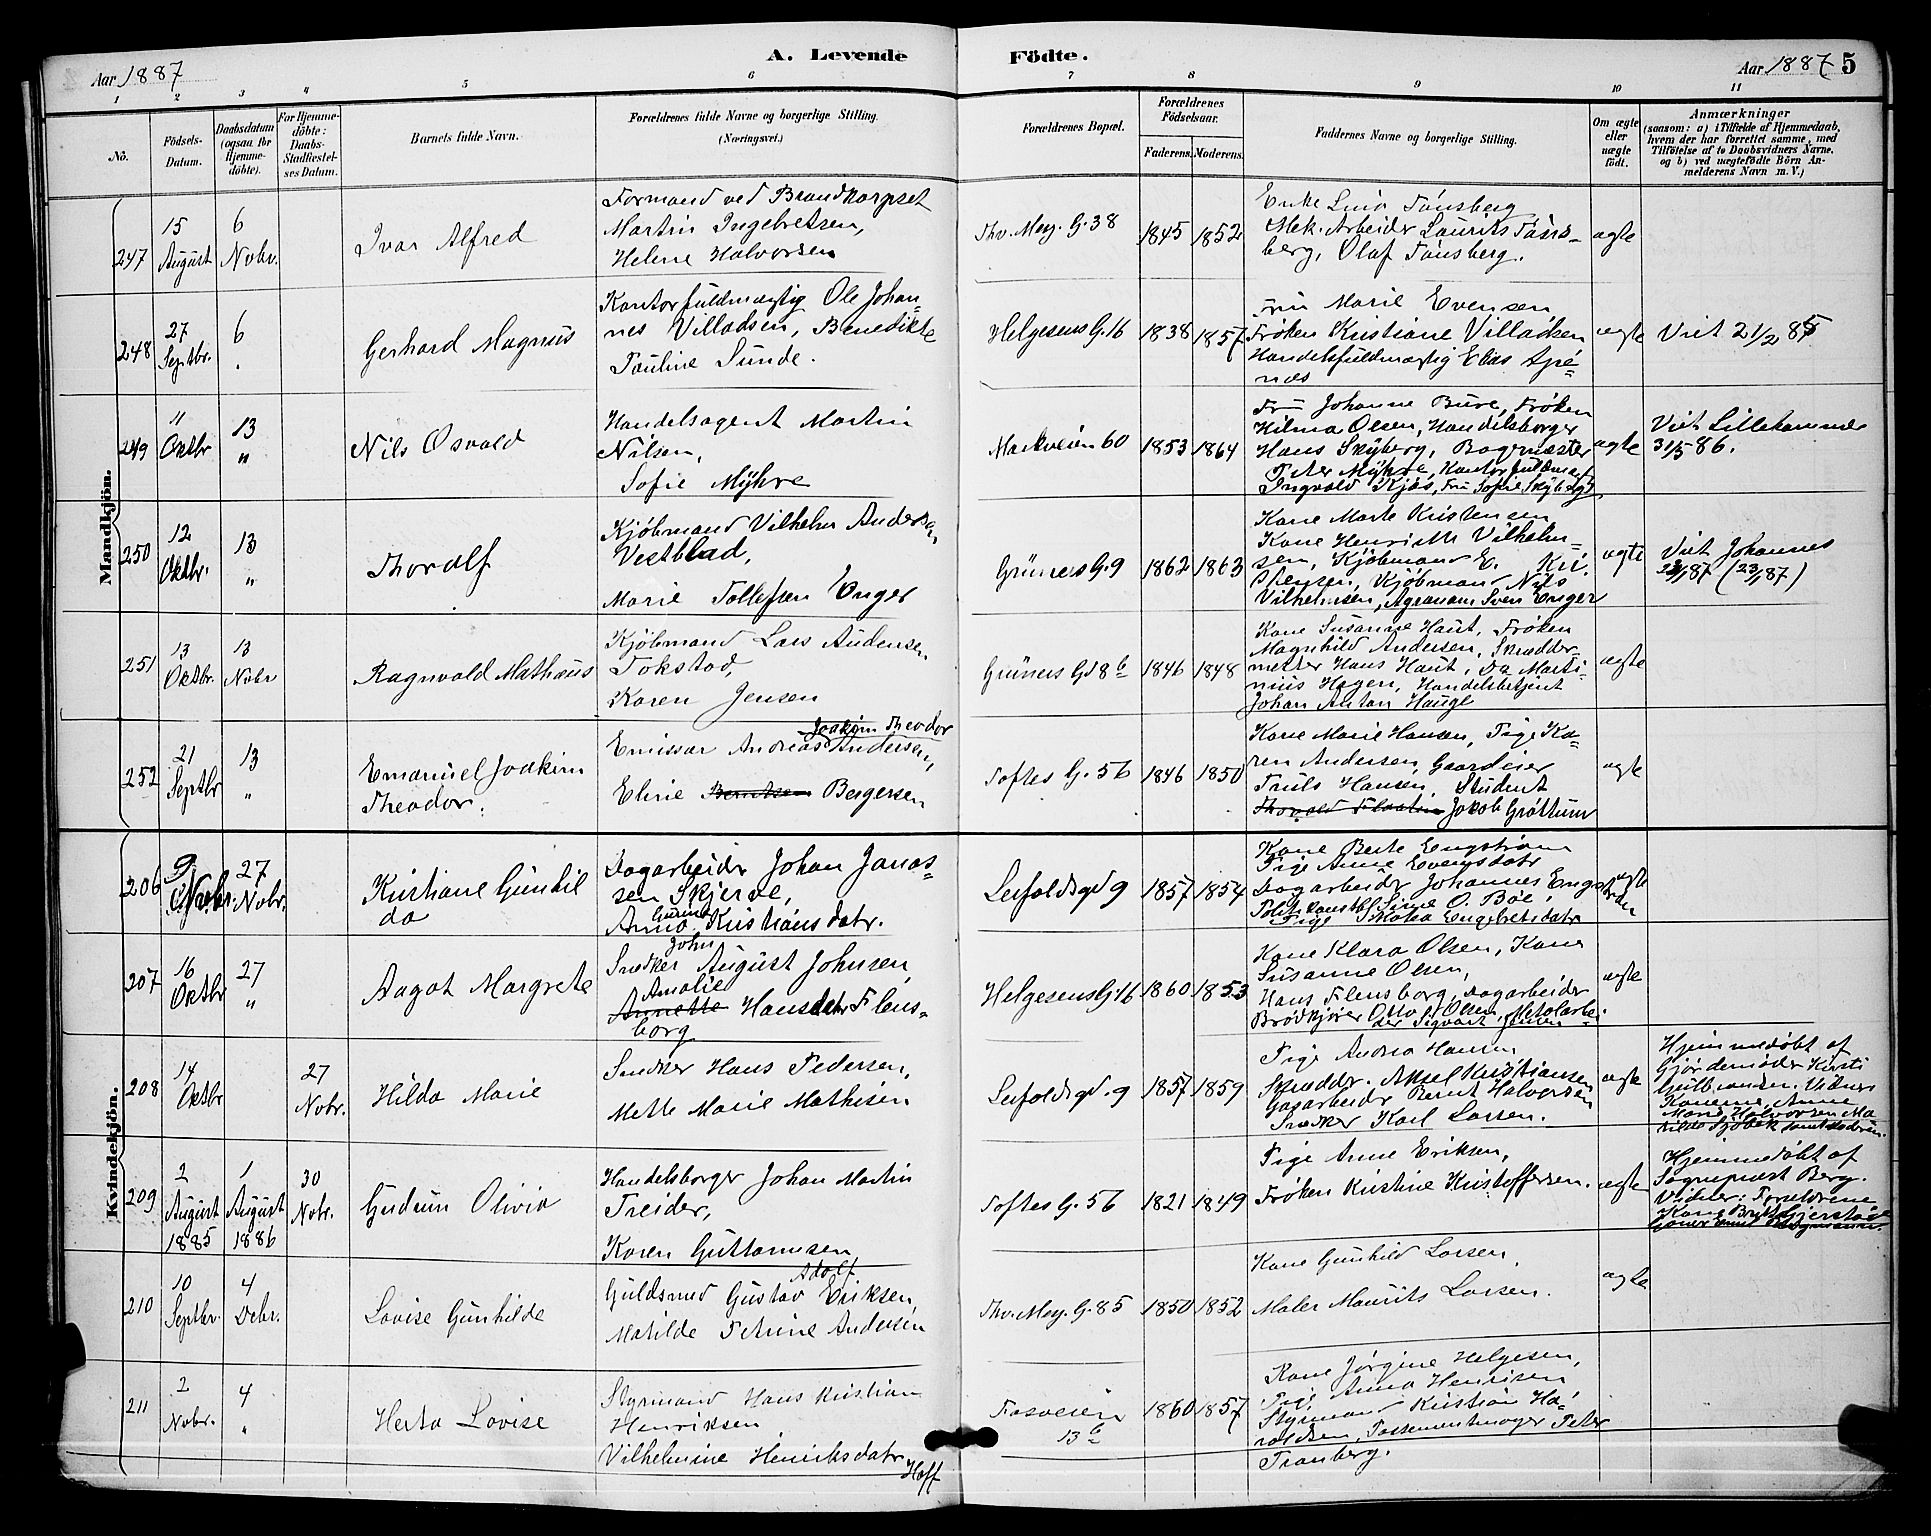 Aar 1887
A. Levende
Födte.
Aar 1887
5
1 2 3 4 5 6 7 8 9 10 11
No.
Födsels-
Datum.
Daabsdatum
(ogsaa for
Hjemme-
döbte).
For Hjemme-
döbte:
Daabs-
Stadfæstel-
ses Datum.
Barnets fulde Navn.
Forældrenes fulde Navne og borgerlige Stilling.
(Næringsvei.)
Forældrenes Bopæl.
Forældrenes
Födselsaar.
Faderens.
Moderens.
Faddernes Navne og borgerlige Stilling.
Om ægte
eller
uægte
födt.
Anmærkninger
(saasom: a) i Tilfælde af Hjemmedaab,
hvem der har forrettet samme, med
Tilföielse af to Daabsvidners Navne.
og b) ved uægtefödte Börn An-
melderens Navn m. V.)
Mandkjön.
247
15
August
6
Novbr.
Ivar Alfred
Formand ved Brandkorpset
Martin Ingebretsen,
Helene Halvorsen
Thv. Mey. G. 38
1845
1852
Enke Lina Tönsberg
Mek. Arbeider Laurits Töns-
berg, Olaf Tönsberg.
ægte
248
27
Septbr.
6
"
Gerhard Magnus
Kontorfuldmægtig Ole Johan-
nes Villadsen, Benedikte
Pauline Sunde.
Helgesens G. 16
1838
1857
Fru Marie Evensen
Frøken Kristiane Villadsen
Handelsfuldmægtig Elias Apé-
næs
ægte
Viet 21/2 85
249
11
Oktbr
13
"
Nils Osvald
Handelsagent Martin
Nilsen,
Sofie Myhre
Markveien 60
1853
1864
Fru Johanne Bure, Frøken
Hilma Olsen, Handelsborger
Hans Skyberg, Bagermester
Peter Myhre, Kontorfuldmægt
Ingvald Kjos, Fru Sofie Skyberg
ægte
Viet Lillehammer
31/5 86.
250
12
Oktbr.
13
"
Thoralf
Kjøbmand Vilhelm Anderse,
Vestblad,
Marie Tollefsen Enger
Grüners G. 9
1862
1863
Kone Marte Kristensen
Kone Henriette Vilhelm-
sen, Kjøbmand E. Kri-
stensen, Kjøbmand Nils
Vilhelmsen, Agronom Sven Enger
ægte
Viet Johannes
23/1 87 (23/1 87)
251
13
Oktbr.
13
Novbr
Ragnvald Mathæus
Kjøbmand Lars Andersen
Tokstad,
Karen Jensen
Grüners G. 18 b
1846
1848
Kone Susanne Haut, Frøken
Magnhild Andersen, Skrædder-
mester Hans Haut, Do Marti-
nius Hagen, Handelsbetjent
Johan Anton Hauge
ægte
252
21
Septbr
13
"
Emanuel Joakim
Theodor.
Joakim Theodor
Emissær Andreas Andersen,
Eline Berntsen Bergersen
Toftes G. 56
1846
1850
Kone Marie Hansen, Pige Ka-
ren Andersen, Gaardeier
Truls Hansen, Student
Thorvald Jakob Grøttum
ægte
Kvindekjön.
206
9
Novbr.
27
Novbr.
Kristiane Gunhil
da
Dagarbeider Johan Jonas-
sen Skjerve,
Gurine
Anna Kristiansdatr.
Leifoldsgd 9
1857
1854
Kone Berte Engstrøm
Pige Anne Evensdatr
Dagarbeider Johannes Eng
Politikonstbl Sime O. Bøe
Pige Maria Engebretsdatr
ægte
207
16
Oktbr
27
"
Aagot Margrete
John
Snedker August Johnsen,
Amalie
Annette Hansdatr Flens-
borg
Helgesens G. 16
1860
1853
Kone Klara Olsen, Kone
Susanne Olsen,
Hans Flensborg, Dagarbeider
Brødkjører Otto Olsen, Metalarbei-
der Sigvart Jensen
ægte
208
14
Oktbr
27
Novbr.
Hilda Marie
Snedker Hans Pedersen,
Mette Marie Mathisen
Leifoldsgd. 9
1857
1859
Pige Andrea Hansen
Skrædder. Aksel Kristiansen
Gasarbeider Bernt Halvorsen
Snedker Karl Larsen.
ægte
Hjemmedøbt af
Gjordemoder Kirsti
Gulbrandsen. Vidner
Konerne Anne
Marie Halvorsen Ma
tilde Sjøbæk samt moderen.
209
2
August
1885
1
August
1886
30
Novbr.
Gudrun Olivia
Handelsborger Johan Martin
Treider,
Karen Guttormsen
Toftes G. 56
1821
1849
Pige Anne Eriksen,
Frøken Kristine Kristoffersen.
ægte
Hjemmedøbt af
Sognepræst Berg.
Vidner: Forældrene
Kone Gjerstad
210
10
Septbr.
4
Debr.
Lovise Gunhilde
Adolf
Guldsmed Gustav Eriksen,
Matilde Petrine Andersen
Thv. Mey. G. 85
1850
1852
Kone Gunhild Larsen,
Maler Maurits Larsen.
ægte
211
2
Novbr.
4
"
Herta Lovise
Styrmand Hans Kristian
Henriksen
Vilhelmine Henriksdatr
Hoff
Fosveien
13 b
1860
1857
Kone Jørgine Helgesen,
Pige Anna Henriksen
Styrmand Kristian Ha-
raldsen, Possementmager Peter
Tranberg.